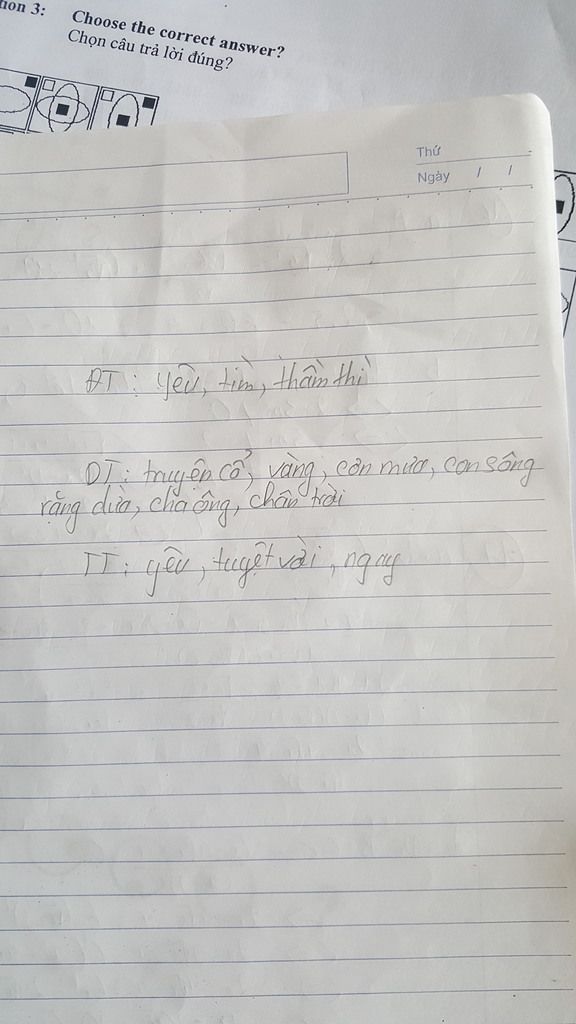 tion 3: Choose the correct answer?
Chọn câu trả lời đúng?
Thứ
Ngày / /
ĐT : yêu, tìm, thầm thì
DT : truyện cổ, vàng, cơn mưa, con sông
rặng dừa, cha ông, chân trời
TT : yêu, tuyệt vời, ngay